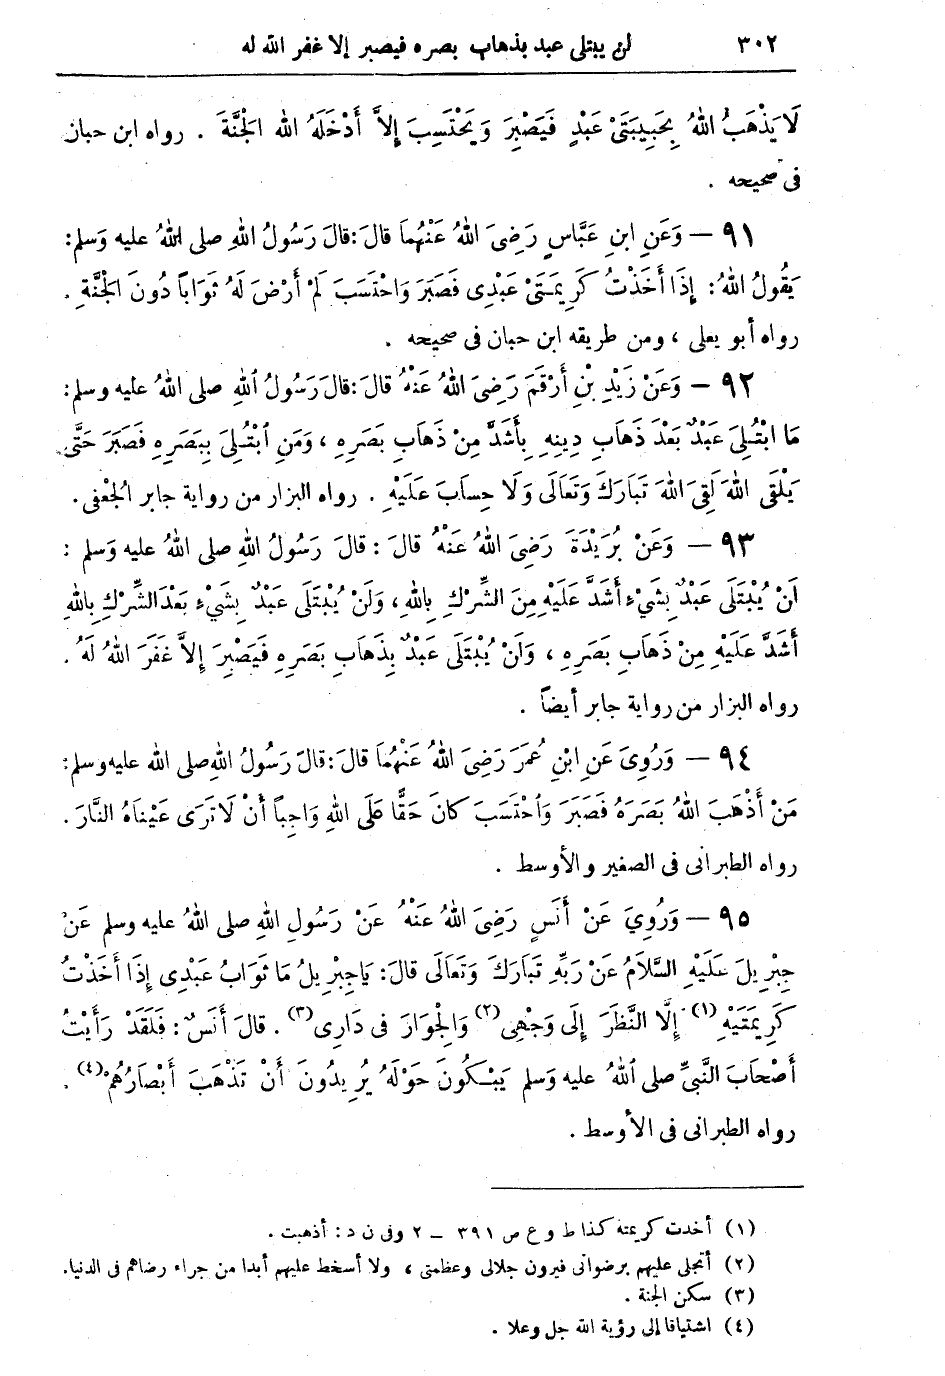 ٣٠٢ لن يبتلى عبد بذهاب بصره فيصبر إلا غفر الله له
لَا يَذْهَبُ اللهُ بِحَبِيبَتَىْ عَبْدٍ فَيَصْبِرَ وَيَحْتَسِبَ إِلاَّ أَدْخَلَهُ اللهُ الْجَنَّةَ . رواه ابن حبان
فى صحيحه .
٩١ — وَعَنِ ابنِ عَبَّاسٍ رَضِىَ اللهُ عَنْهُمَا قالَ : قالَ رَسُولُ اللهِ صلى اللهُ عليه وَسلم :
يَقُولُ اللهُ : إِذَا أَخَذْتُ كَرِيمَتَىْ عَبْدِى فَصَبَرَ وَاحْتَسَبَ لَمْ أَرْضَ لَهُ ثَوَاباً دُونَ الْجَنَّةِ .
رواه أبو يعلى ، ومن طريقه ابن حبان فى صحيحه .
٩٢ — وَعَنْ زَيْدِ بْنِ أَرْقَمَ رَضِىَ اللهُ عَنْهُ قالَ : قالَ رَسُولُ اللهِ صلى اللهُ عليه وسلم :
مَا ابْتُلِىَ عَبْدٌ بَعْدَ ذَهَابِ دِينِهِ بِأَشَدَّ مِنْ ذَهَابِ بَصَرِهِ ، وَمَنِ ابْتُلِىَ بِبَصَرِهِ فَصَبَرَ حَتَّى
يَلْقَى اللهَ لَقِىَ اللهَ تَبَارَكَ وَتَعَالَى وَلَا حِسَابَ عَلَيْهِ . رواه البزار من رواية جابر الْجُعْفى .
٩٣ — وَعَنْ بُرَيْدَةَ رَضِىَ اللهُ عَنْهُ قالَ : قالَ رَسُولُ اللهِ صلى اللهُ عليه وَسلم :
لَنْ يُبْتَلَى عَبْدٌ بِشَىْءٍ أَشَدَّ عَلَيْهِ مِنَ الشِّرْكِ بِاللهِ ، وَلَنْ يُبْتَلَى عَبْدٌ بِشَىْءٍ بَعْدَ الشِّرْكِ بِاللهِ
أَشَدَّ عَلَيْهِ مِنْ ذَهَابِ بَصَرِهِ ، وَلَنْ يُبْتَلَى عَبْدٌ بِذَهَابِ بَصَرِهِ فَيَصْبِرَ إِلاَّ غَفَرَ اللهُ لَهُ .
رواه البزار من رواية جابر أيضاً .
٩٤ — وَرُوِىَ عَنِ ابْنِ عُمَرَ رَضِىَ اللهُ عَنْهُمَا قالَ : قالَ رَسُولُ اللهِ صلى الله عليه وسلم :
مَنْ أَذْهَبَ اللهُ بَصَرَهُ فَصَبَرَ وَاحْتَسَبَ كَانَ حَقًّا عَلَى اللهِ وَاجِباً أَنْ لَا تَرَى عَيْنَاهُ النَّارَ .
رواه الطبرانى فى الصغير والأوسط .
٩٥ — وَرُوِيَ عَنْ أَنَسٍ رَضِىَ اللهُ عَنْهُ عَنْ رَسُولِ اللهِ صلى اللهُ عليه وسلم عَنْ
جِبْرِيلَ عَلَيْهِ السَّلَامُ عَنْ رَبِّهِ تَبَارَكَ وَتَعَالَى قالَ : يَاجِبْرِيلُ مَا ثَوَابُ عَبْدِى إِذَا أَخَذْتُ
كَرِيمَتَيْهِ (١) إِلَّا النَّظَرَ إِلَى وَجْهِى (٢) وَالْجِوَارَ فى دَارِى (٣) . قالَ أَنَسٌ : فَلَقَدْ رَأَيْتُ
أَصْحَابَ النَّبِىِّ صلى اللهُ عليه وَسلم يَبْكُونَ حَوْلَهُ يُرِيدُونَ أَنْ تَذْهَبَ أَبْصَارُهُمْ (٤) .
رواه الطبرانى فى الأوسط .
(١) أخذت كريمته كذا ط و ع ص ٣٩١ — ٢ وفى ن د : أذهبت .
(٢) أتجلى عليهم برضوانى فيرون جلالى وعظمتى ، ولا أسخط عليهم أبدا من جراء رضاهم فى الدنيا .
(٣) سكن الجنة .
(٤) اشتياقا إلى رؤية الله جل وعلا .